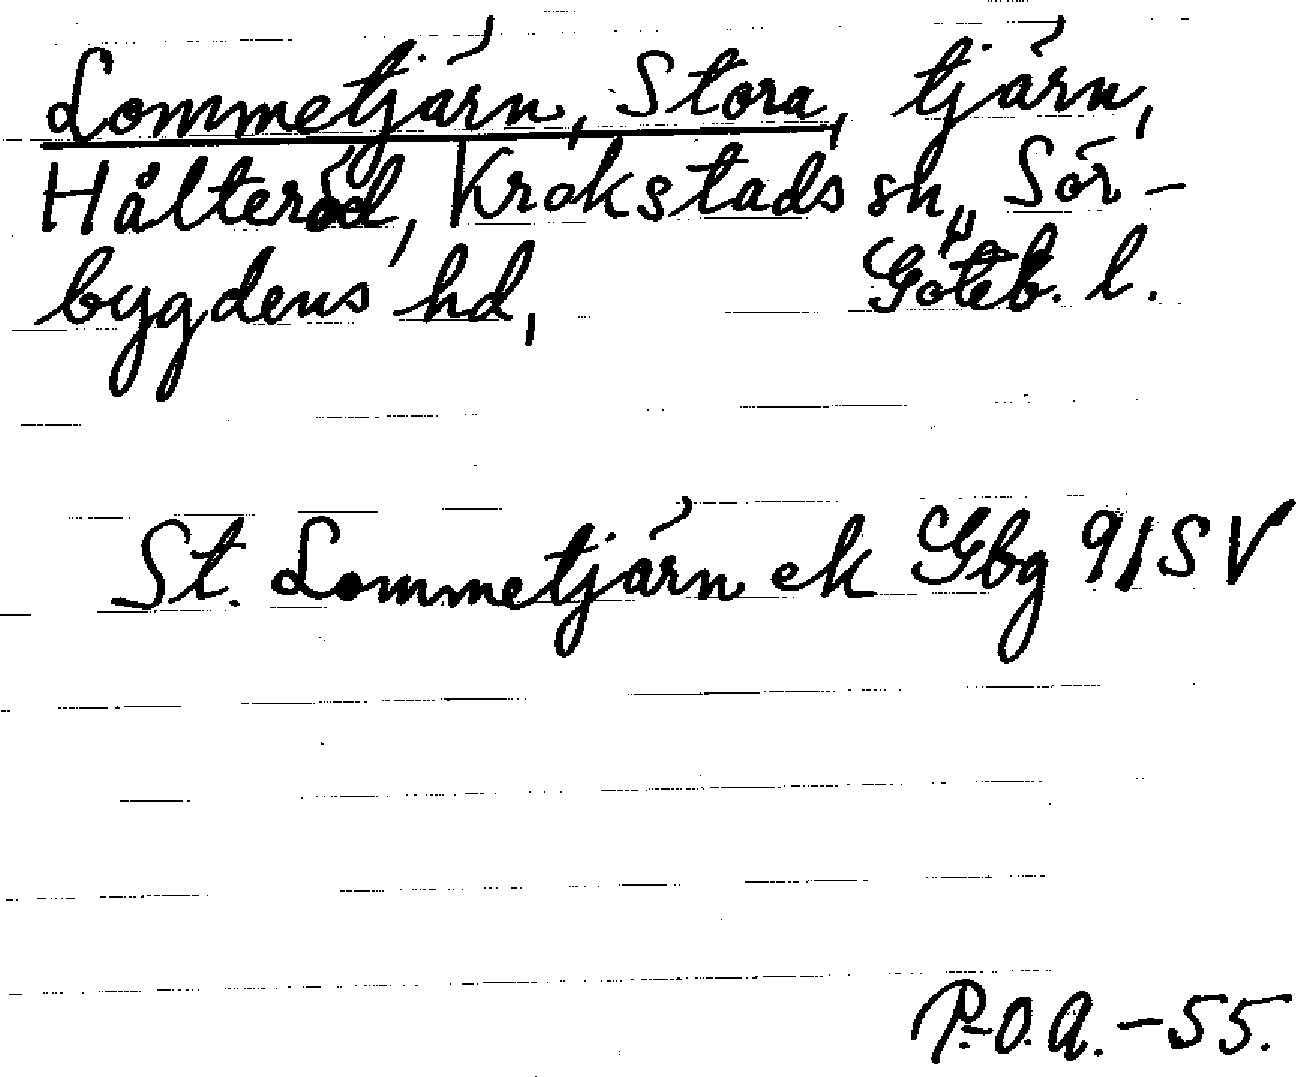 Lommetjärn, Stora, tjärn,
Hålteröd, Krokstads sn, Sör-
bygdens hd, Göteb. l.
St. Lommetjärn ek Gbg 91SV
P.-O.A. -55.